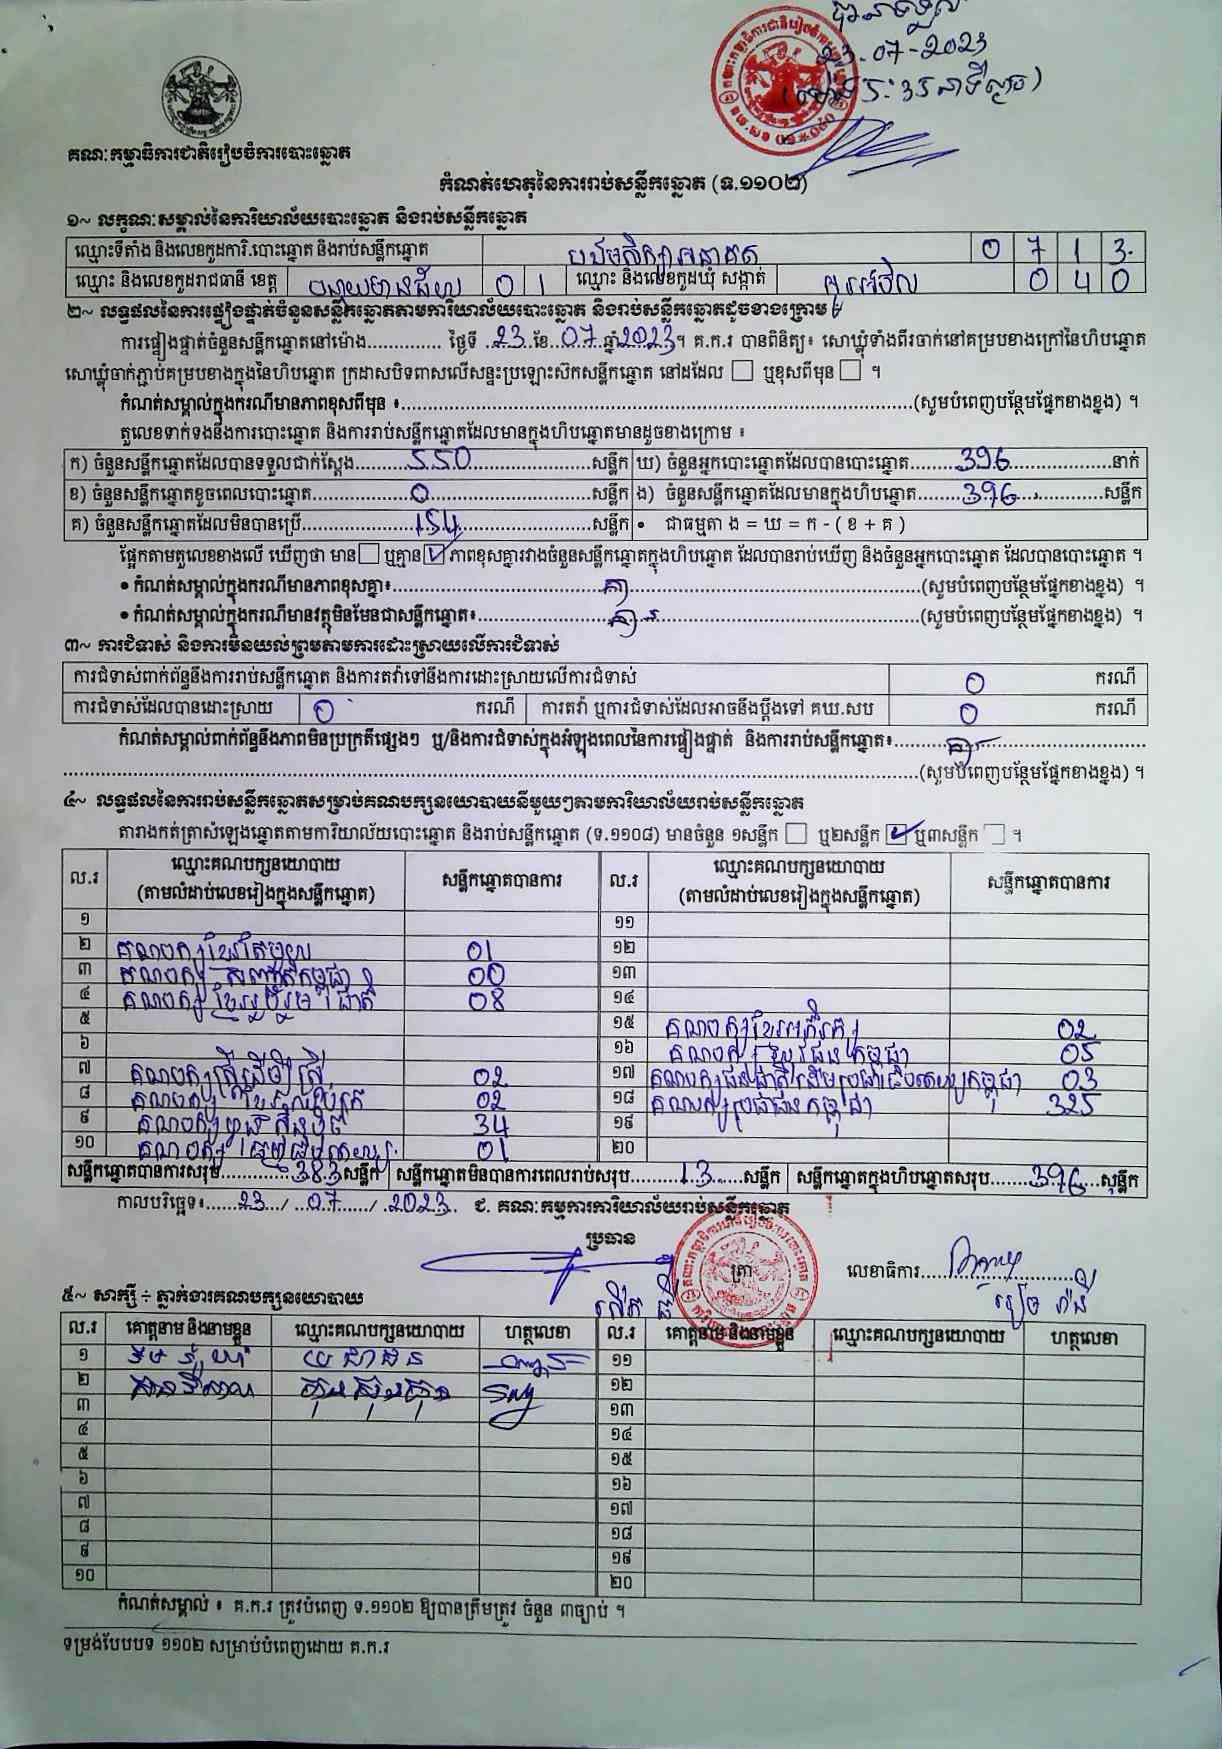 23-07-2023
គណៈកម្មាធិការជាតិរៀបចំការបោះឆ្នោត
កំណត់ហេតុនៃការរាប់សន្លឹកឆ្នោត (ទ.១១០២)
១~ លក្ខណៈសម្គាល់នៃការិយាល័យបោះឆ្នោត និងរាប់សន្លឹកឆ្នោត
ឈ្មោះទីតាំង និងលេខកូដការិ.បោះឆ្នោត និងរាប់សន្លឹកឆ្នោត 0 7 1 3
ឈ្មោះ និងលេខកូដរាជធានី ខេត្ត បន្ទាយមានជ័យ 0 1 ឈ្មោះ និងលេខកូដឃុំ សង្កាត់ 0 4 0
២~ លទ្ធផលនៃការផ្ទៀងផ្ទាត់ចំនួនសន្លឹកឆ្នោតតាមការិយាល័យបោះឆ្នោត និងរាប់សន្លឹកឆ្នោតដូចខាងក្រោម៖
ការផ្ទៀងផ្ទាត់ចំនួនសន្លឹកឆ្នោតនៅម៉ោង.............. ថ្ងៃទី 23 ខែ 07 ឆ្នាំ 2023។ គ.ក.រ បានពិនិត្យ៖ សោឃ្លុំទាំងពីរចាក់នៅគម្របខាងក្រៅនៃហិបឆ្នោត
សោឃ្លុំចាក់ភ្ជាប់គម្របខាងក្នុងនៃហិបឆ្នោត ក្រដាសបិទពាសលើសន្ទះប្រឡោះស៊កសន្លឹកឆ្នោត នៅដដែល ☐ ឬខុសពីមុន ☐ ។
កំណត់សម្គាល់ក្នុងករណីមានភាពខុសពីមុន ៖..........(សូមបំពេញបន្ថែមផ្នែកខាងខ្នង) ។
តួលេខទាក់ទងនឹងការបោះឆ្នោត និងការរាប់សន្លឹកឆ្នោតដែលមានក្នុងហិបឆ្នោតមានដូចខាងក្រោម ៖
ក) ចំនួនសន្លឹកឆ្នោតដែលបានទទួលជាក់ស្តែង..........550..........សន្លឹក ឃ) ចំនួនអ្នកបោះឆ្នោតដែលបានបោះឆ្នោត..........396..........នាក់
ខ) ចំនួនសន្លឹកឆ្នោតខូចពេលបោះឆ្នោត..........0..........សន្លឹក ង) ចំនួនសន្លឹកឆ្នោតដែលមានក្នុងហិបឆ្នោត..........396..........សន្លឹក
គ) ចំនួនសន្លឹកឆ្នោតដែលមិនបានប្រើ..........154..........សន្លឹក • ជាធម្មតា ង = ឃ = ក - ( ខ + គ )
ផ្អែកតាមតួលេខខាងលើ ឃើញថា មាន ☐ ឬគ្មាន ☑ ភាពខុសគ្នារវាងចំនួនសន្លឹកឆ្នោតក្នុងហិបឆ្នោត ដែលបានរាប់ឃើញ និងចំនួនអ្នកបោះឆ្នោត ដែលបានបោះឆ្នោត ។
• កំណត់សម្គាល់ក្នុងករណីមានភាពខុសគ្នា៖..........គ្មាន..........(សូមបំពេញបន្ថែមផ្នែកខាងខ្នង) ។
• កំណត់សម្គាល់ក្នុងករណីមានវត្ថុមិនមែនជាសន្លឹកឆ្នោត៖..........គ្មាន..........(សូមបំពេញបន្ថែមផ្នែកខាងខ្នង) ។
៣~ ការជំទាស់ និងការមិនយល់ព្រមតាមការដោះស្រាយលើការជំទាស់
ការជំទាស់ពាក់ព័ន្ធនឹងការរាប់សន្លឹកឆ្នោត និងការតវ៉ាទៅនឹងការដោះស្រាយលើការជំទាស់ 0 ករណី
ការជំទាស់ដែលបានដោះស្រាយ 0 ករណី ការតវ៉ា ឬការជំទាស់ដែលអាចនឹងប្តឹងទៅ គឃ.សប 0 ករណី
កំណត់សម្គាល់ពាក់ព័ន្ធនឹងភាពមិនប្រក្រតីផ្សេងៗ ឬ/និងការជំទាស់ក្នុងអំឡុងពេលនៃការផ្ទៀងផ្ទាត់ និងការរាប់សន្លឹកឆ្នោត៖..........គ្មាន..........
(សូមបំពេញបន្ថែមផ្នែកខាងខ្នង) ។
៤~ លទ្ធផលនៃការរាប់សន្លឹកឆ្នោតសម្រាប់គណបក្សនយោបាយនីមួយៗតាមការិយាល័យរាប់សន្លឹកឆ្នោត
តារាងកត់ត្រាសំឡេងឆ្នោតតាមការិយាល័យបោះឆ្នោត និងរាប់សន្លឹកឆ្នោត (ទ.១១០៨) មានចំនួន ១សន្លឹក ☐ ឬ២សន្លឹក ☑ ឬ៣សន្លឹក ☐ ។
ល.រ ឈ្មោះគណបក្សនយោបាយ (តាមលំដាប់លេខរៀងក្នុងសន្លឹកឆ្នោត) សន្លឹកឆ្នោតបានការ ល.រ ឈ្មោះគណបក្សនយោបាយ (តាមលំដាប់លេខរៀងក្នុងសន្លឹកឆ្នោត) សន្លឹកឆ្នោតបានការ
១ ១១
២ គណបក្សខ្មែរតែមួយ 01 ១២
៣ គណបក្ស សញ្ជាតិកម្ពុជា 00 ១៣
៤ គណបក្ស ខ្មែររួបរួមជាតិ 08 ១៤
៥ ១៥ គណបក្សខ្មែរអភិរក្ស 02
៦ ១៦ គណបក្ស 05
៧ គណបក្សស្ត្រីដើម្បីស្ត្រី 02 ១៧ គណបក្សជនជាតិដើមប្រជាធិបតេយ្យកម្ពុជា 03
៨ គណបក្ស 02 ១៨ គណបក្សប្រជាជនកម្ពុជា 325
៩ គណបក្សហ៊្វុនស៊ិនប៉ិច 34 ១៩
១០ គណបក្ស 01 ២០
សន្លឹកឆ្នោតបានការសរុប..........383 សន្លឹក សន្លឹកឆ្នោតមិនបានការពេលរាប់សរុប..........13..........សន្លឹក សន្លឹកឆ្នោតក្នុងហិបឆ្នោតសរុប..........396..........សន្លឹក
កាលបរិច្ឆេទ៖ 23 / 07 / 2023 ជ. គណៈកម្មការការិយាល័យរាប់សន្លឹកឆ្នោត
ប្រធាន
ត្រា
លេខាធិការ
៥~ សាក្សី ÷ ភ្នាក់ងារគណបក្សនយោបាយ
ល.រ គោត្តនាម និងនាមខ្លួន ឈ្មោះគណបក្សនយោបាយ ហត្ថលេខា ល.រ គោត្តនាម និងនាមខ្លួន ឈ្មោះគណបក្សនយោបាយ ហត្ថលេខា
១ ប្រជាជន ១១
២ ១២
៣ ១៣
៤ ១៤
៥ ១៥
៦ ១៦
៧ ១៧
៨ ១៨
៩ ១៩
១០ ២០
កំណត់សម្គាល់ ៖ គ.ក.រ ត្រូវបំពេញ ទ.១១០២ ឱ្យបានត្រឹមត្រូវ ចំនួន ៣ច្បាប់ ។
ទម្រង់បែបបទ ១១០២ សម្រាប់បំពេញដោយ គ.ក.រ